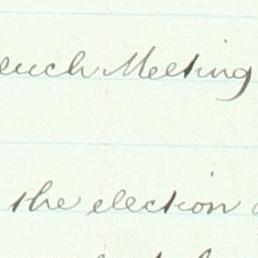 such Meeting
the election